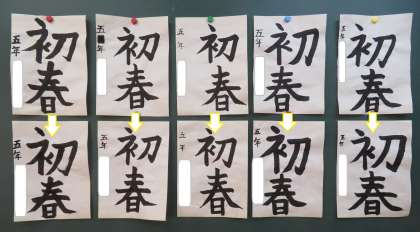 初春
五年
初春
五年
初春
五年
初春
五年
初春
五年
初春
五年
初春
五年
初春
五年
初春
五年
初春
五年